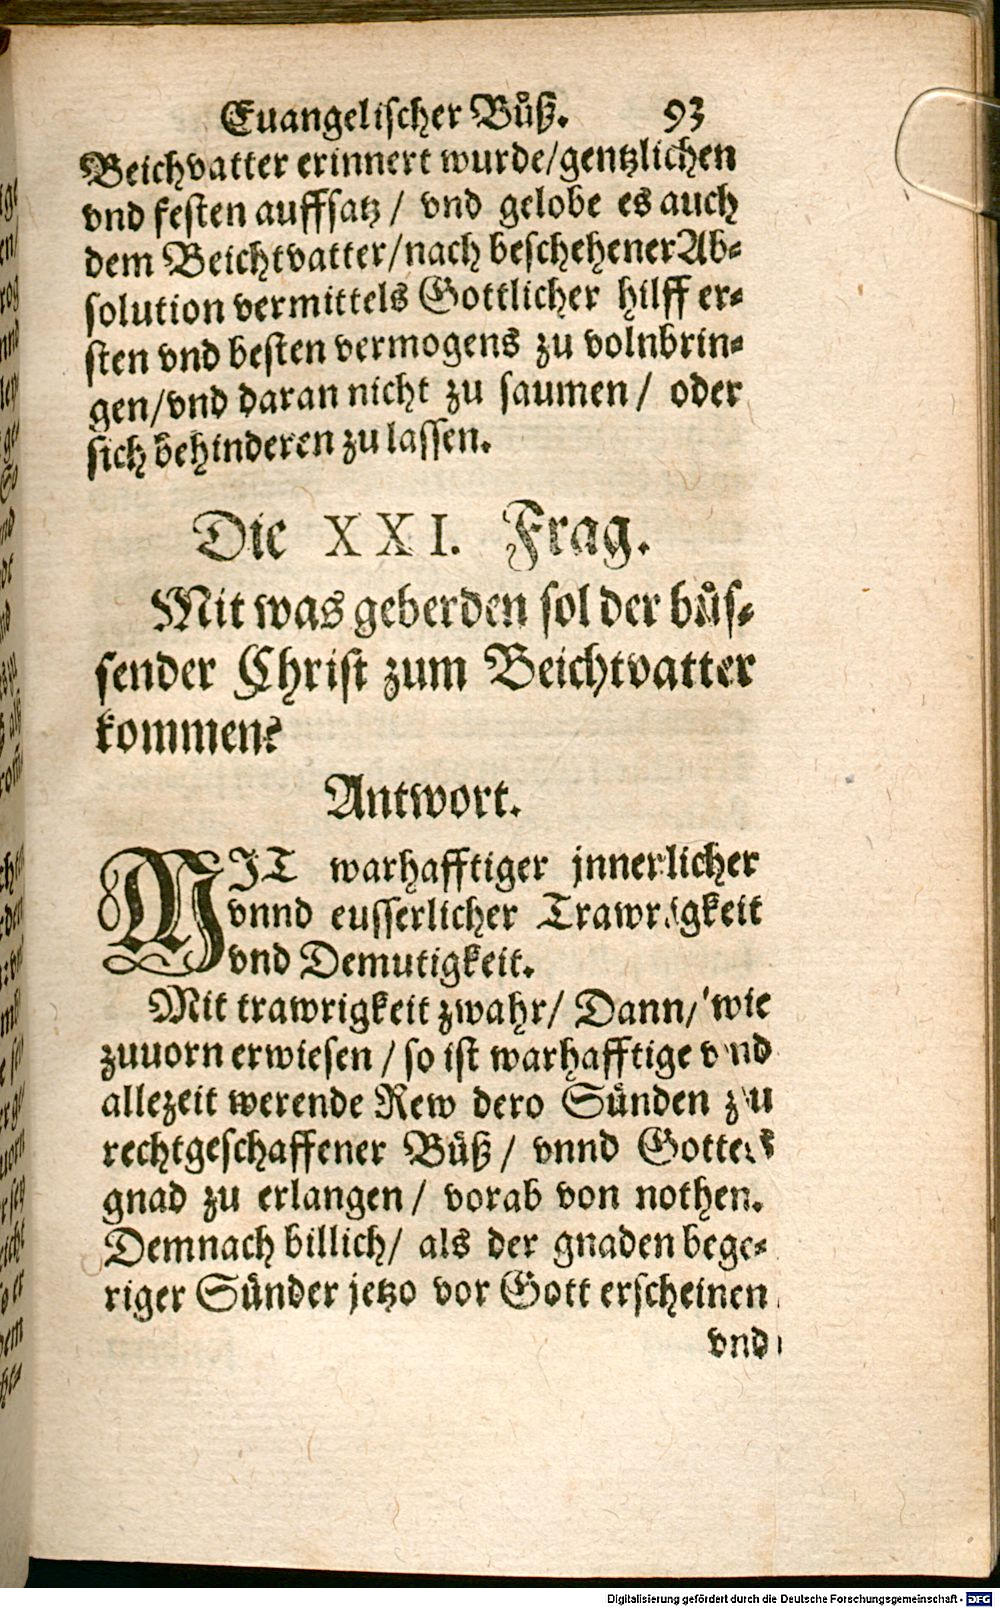 Euangelischer Bůß. 93
Beichvatter erinnert wurde/gentzlichen
vnd festen auffsatz / vnd gelobe es auch
dem Beichtvatter/nach beschehener Ab-
solution vermittels Gottlicher hilff er-
sten vnd besten vermogens zu volnbrin-
gen/vnd daran nicht zu saumen / oder
sich behinderen zu lassen.
Die XXI. Frag.
Mit was geberden sol der bůs-
sender Christ zum Beichtvatter
kommen?
Antwort.
MIT warhafftiger jnnerlicher
vnnd eusserlicher Trawrigkeit
vnd Demutigkeit.
Mit trawrigkeit zwahr/ Dann/ wie
zuuorn erwiesen / so ist warhafftige vnd
allezeit werende Rew dero Sünden zu
rechtgeschaffener Büß / vnnd Gottes
gnad zu erlangen / vorab von nothen.
Demnach billich/ als der gnaden bege-
riger Sünder jetzo vor Gott erscheinen
vnd
Digitalisierung gefördert durch die Deutsche Forschungsgemeinschaft - DFG